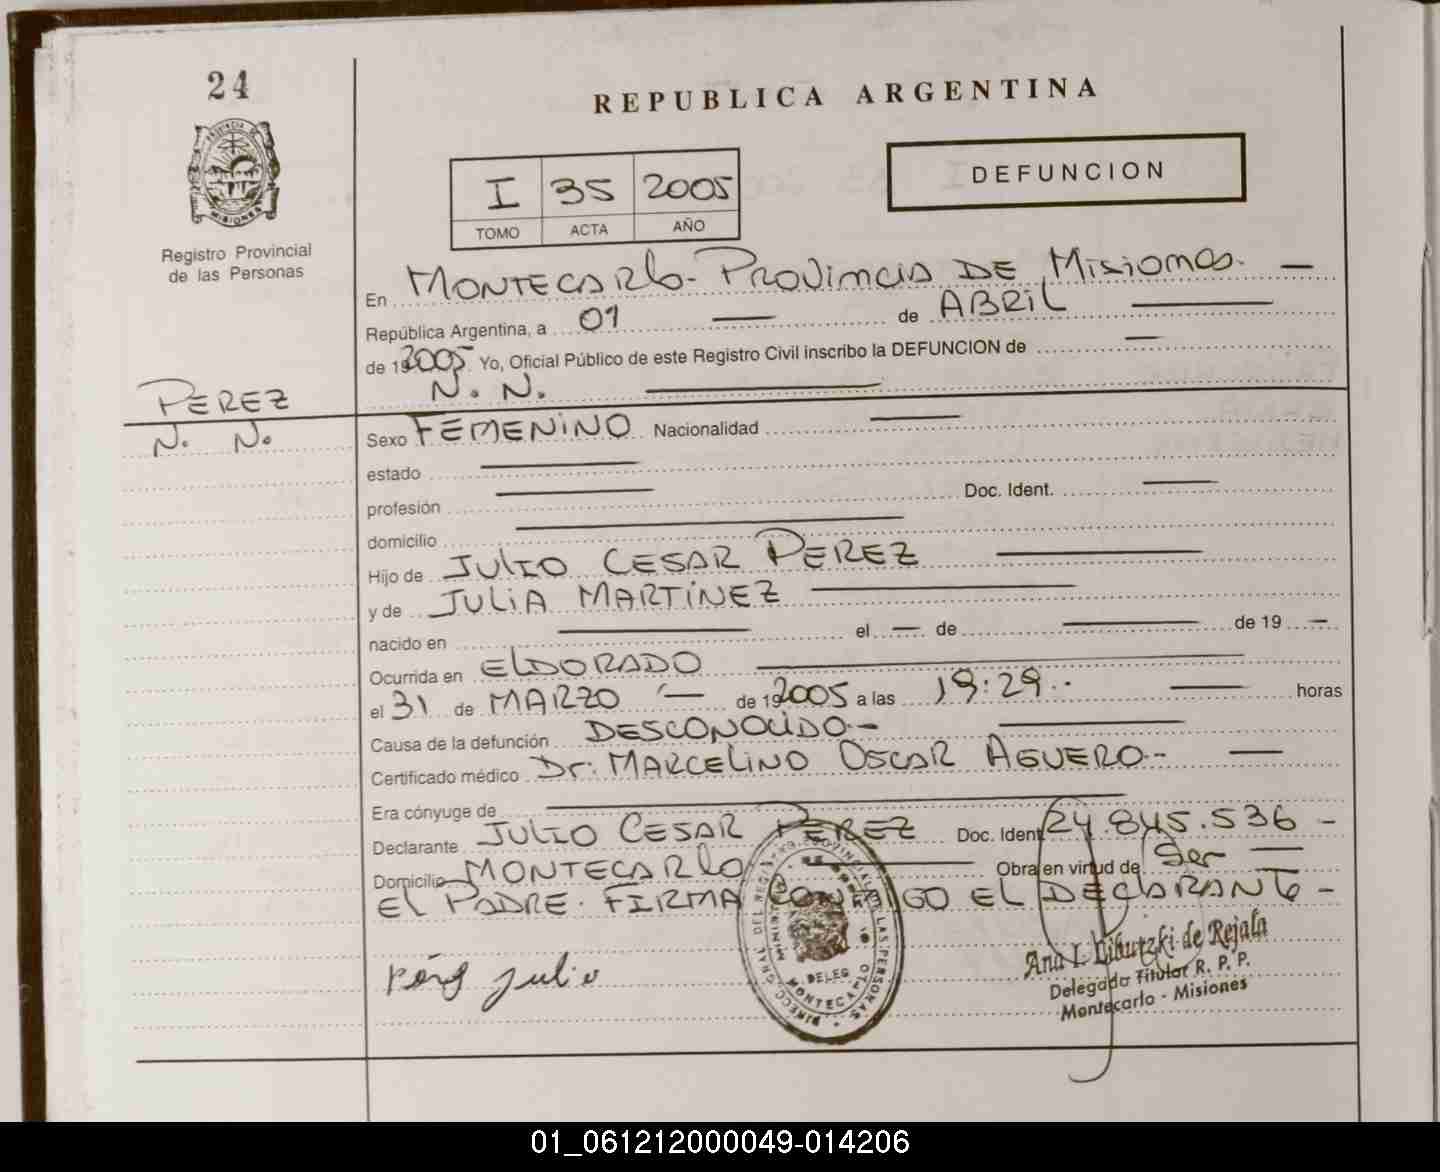 24
REPUBLICA ARGENTINA
PROVINCIA DE
MISIONES
Registro Provincial
de las Personas
I 35 2005
TOMO ACTA AÑO
DEFUNCION
En MONTECARLO - PROVINCIA DE MISIONES. —
República Argentina, a 01 — de ABRIL —
de 192005. Yo, Oficial Público de este Registro Civil inscribo la DEFUNCION de —
N. N. —
PEREZ
N. N.
Sexo FEMENINO Nacionalidad —
estado —
profesión — Doc. Ident. —
domicilio —
Hijo de JULIO CESAR PEREZ —
y de JULIA MARTINEZ —
nacido en — el — de — de 19 —
Ocurrida en ELDORADO —
el 31 de MARZO — de 192005 a las 19:29.. — horas
Causa de la defunción DESCONOCIDO - —
Certificado médico Dr: MARCELINO OSCAR AGUERO - —
Era cónyuge de —
Declarante JULIO CESAR PEREZ Doc. Ident 24.845.536 -
Domicilio MONTECARLO — Obra en virtud de Ser —
EL PADRE. FIRMA CONMIGO EL DECLARANTE -
julio
DELEG
MONTECARLO
LAS PERSONAS
Ana I. Libutzki de Rejala
Delegado Titular R. P. P.
Montecarlo - Misiones
01_061212000049-014206